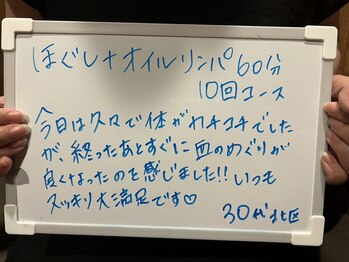 ほぐし+オイルリンパ60分
10回コース
今日は久々で体がカチコチでした
が、終ったあとすぐに血のめぐりが
良くなったのを感じました!!いつも
スッキリ大満足です♡
30代北区